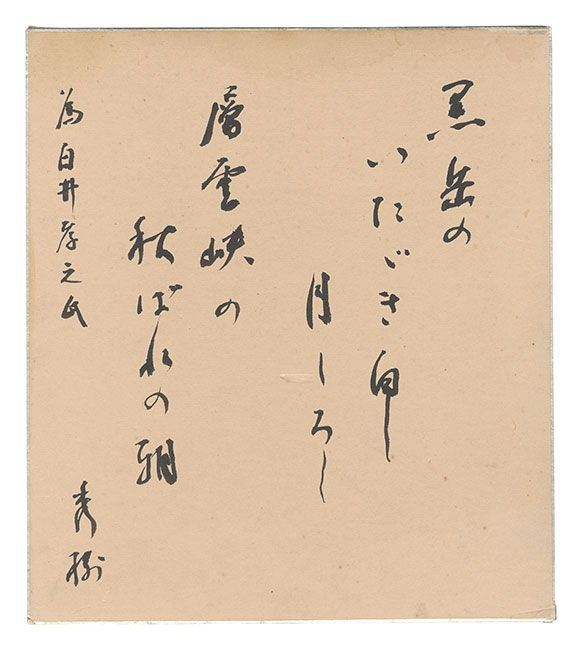 黒岳の
いたゞき白し
月しろし
層雲峡の
秋ばれの朝
秀樹
為白井孝之氏